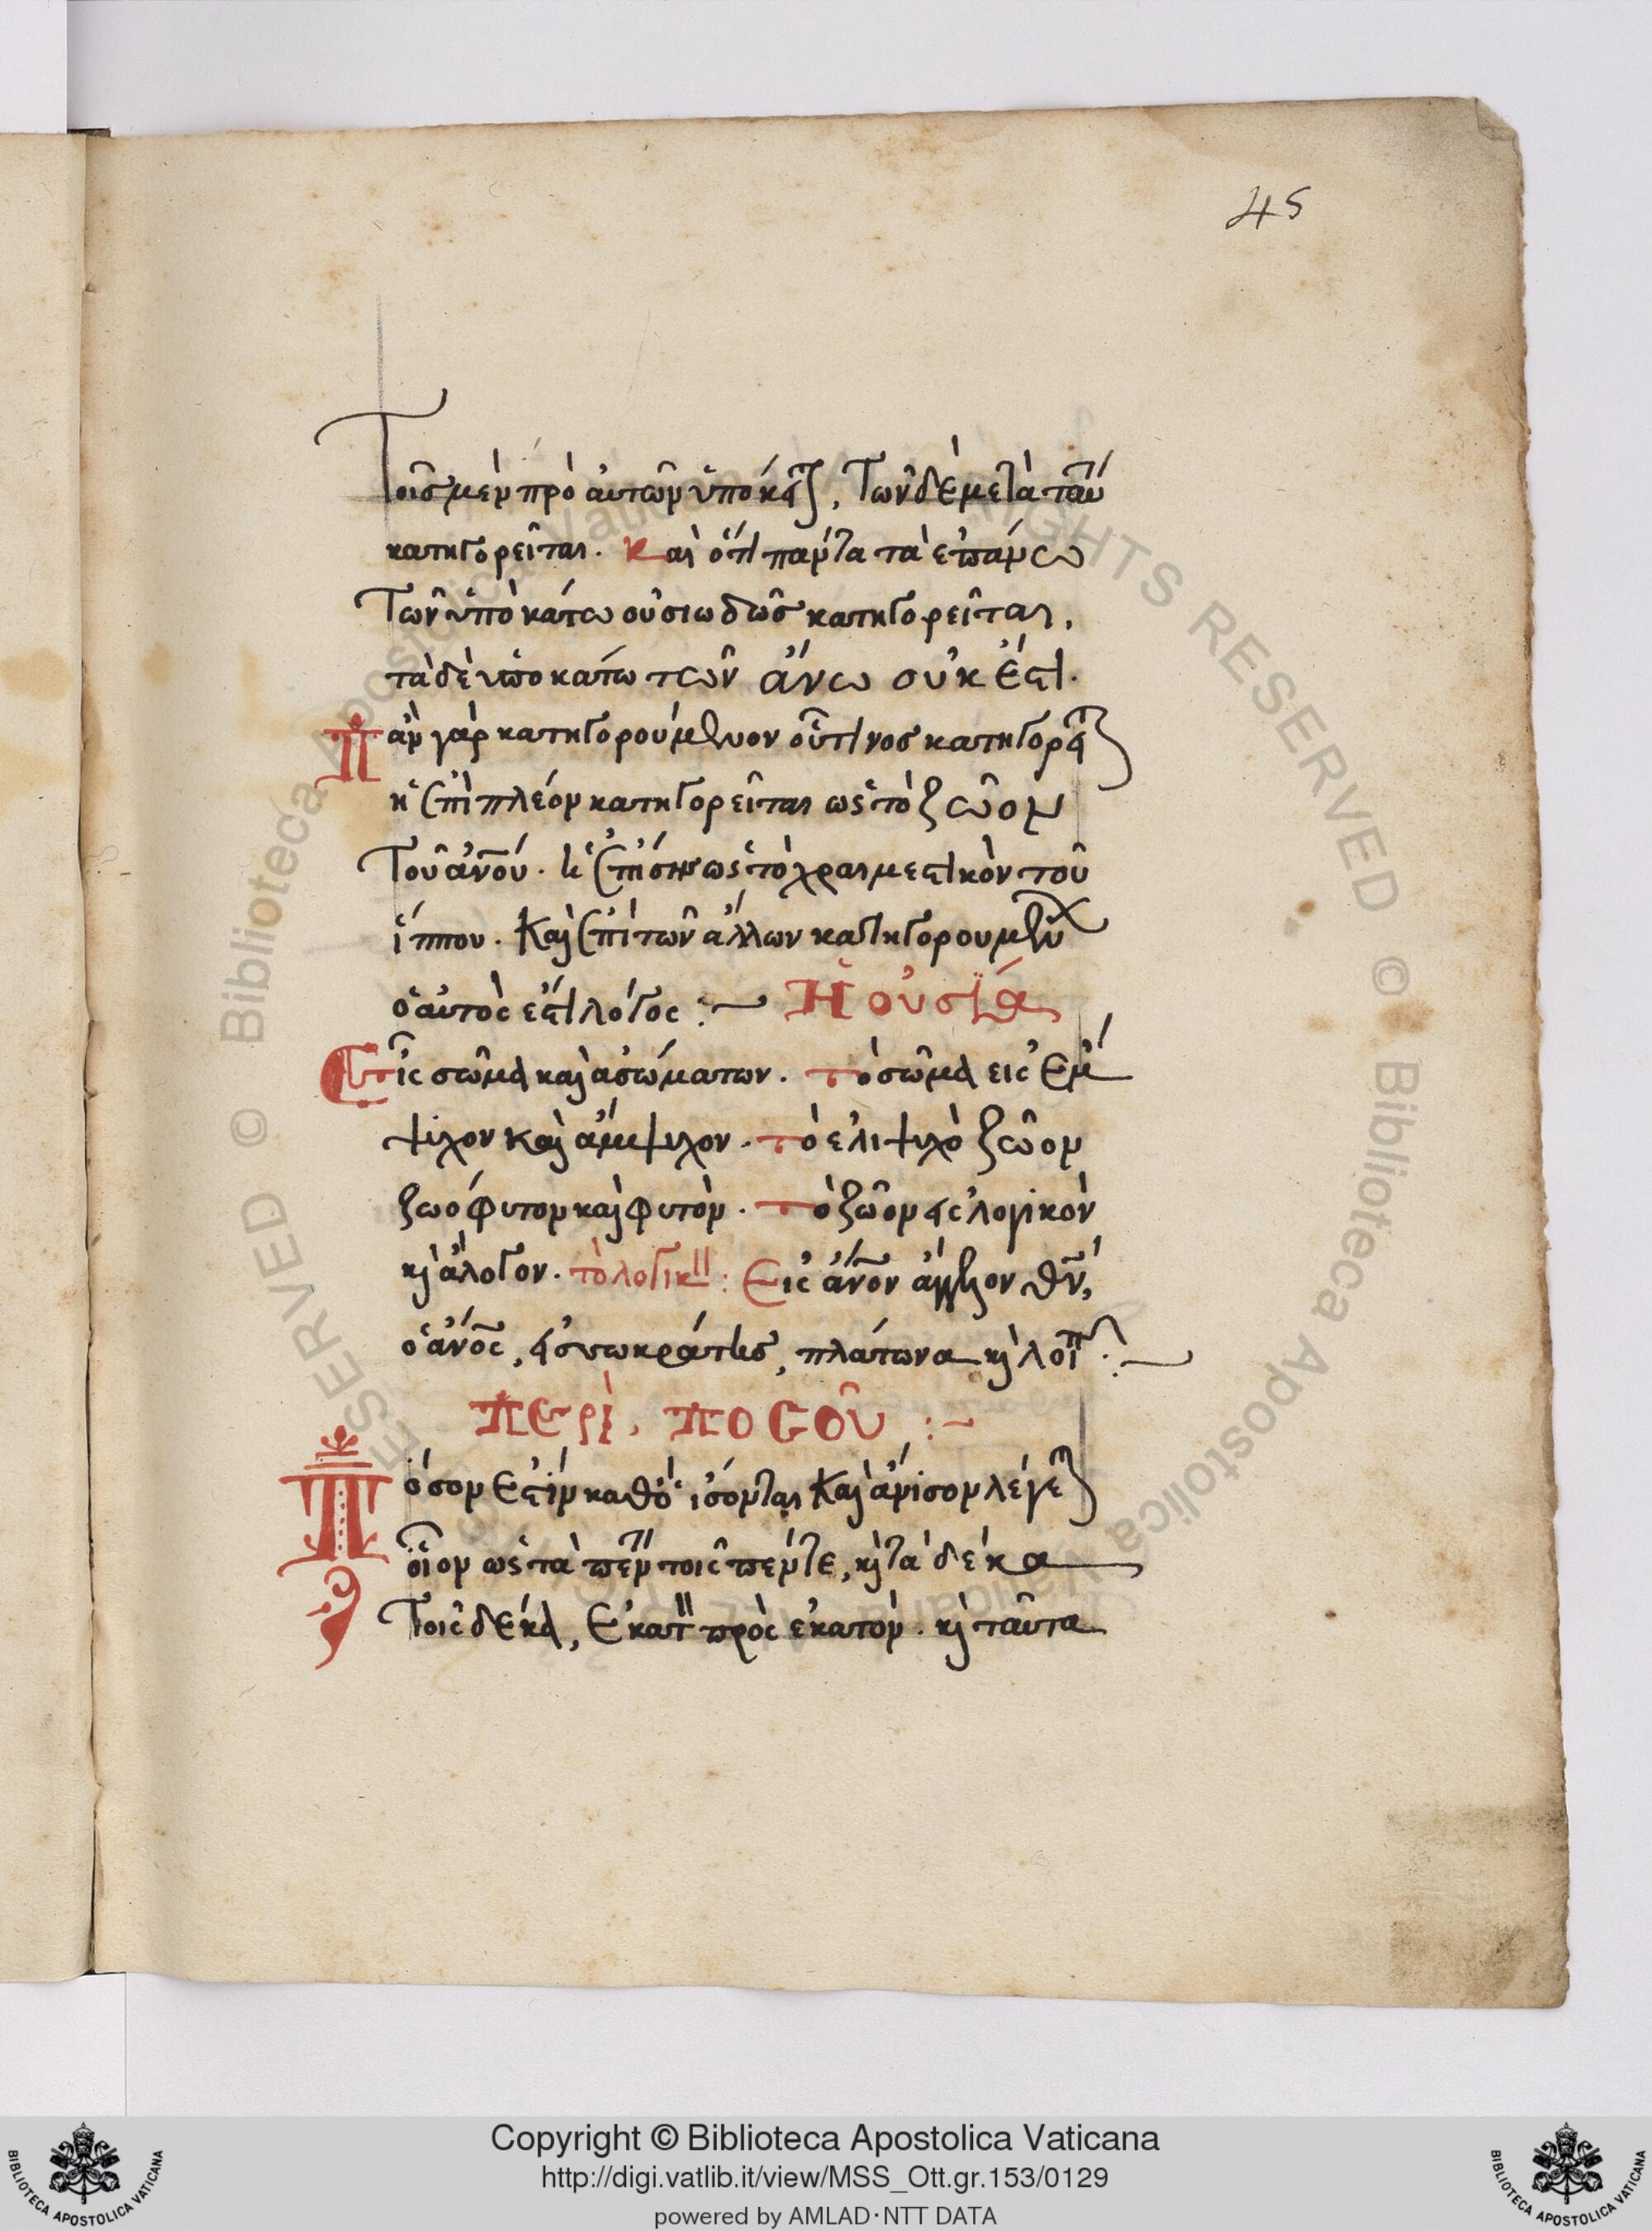 45
Τοῖς μὲν πρὸ αὐτῶν ὑπόκειται, Τῶν δὲ μετὰ ταῦ
κατηγορεῖται. Καὶ ὅτι πάντα τὰ ἐπάνω
Τῶν ὑπὸ κάτω οὐσιωδῶς κατηγορεῖται,
τὰ δὲ ὑπο κάτω τῶν ἄνω οὐκ ἔστι.
Πᾶν γὰρ κατηγορούμενον οὗτινος κατηγορεῖται
ἢ ἐπὶ πλέον κατηγορεῖται ὡς τὸ ζῶον
Τοῦ ἀνου. ἢ ἐπίσης ὡς τὸ χρεμεστικὸν τοῦ
ἵππου. Καὶ ἐπὶ τῶν ἄλλων κατηγορουμένων
ὁ αὐτὸς ἐστὶ λόγος :— Ἡ οὐσία
Εἰς σῶμα καὶ ἀσώματον. τὸ σῶμα εἰς ἔμ
ψιχον καὶ ἄμψιχον. τὸ ἐμψιχὸ ζῶον
ζωόφυτον καὶ φυτὸν. τὸ ζῶον εἰς λογικὸν
κὶ ἄλογον. τὸ λογικ : Εἰς ἄνον ἄγγελον θν,
ὁ ἄνος, εἰς σωκράτης, πλάτωνα κὶ λοιπ :—
περὶ, ποσοῦ :—
Πόσον ἐστὶν καθὸ ἰσόνται Καὶ ἄνισον λέγεται
οἷον ὡς τὰ πέν τοῖς πέντε, κὶ τὰ δέκα
Τοῖς δέκα, ἑκατ πρὸς ἑκατόν. κὶ ταῦτα
Copyright © Biblioteca Apostolica Vaticana
http://digi.vatlib.it/view/MSS_Ott.gr.153/0129
powered by AMLAD·NTT DATA
BIBLIOTECA APOSTOLICA VATICANA
BIBLIOTECA APOSTOLICA VATICANA